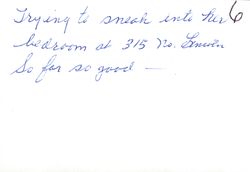 Trying to sneak into her 6
bedroom at 315 No.
So far so good —